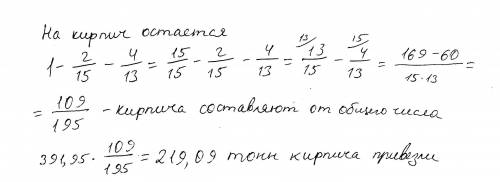 На кирпич остается
1 - 2/15 - 4/13 = 15/15 - 2/15 - 4/13 = ¹³⁄13/15 - ¹⁵⁄4/13 = (169 - 60)/(15·13) =
= 109/195 - кирпича составляют от общего числа
391,95 · 109/195 = 219,09 тонн кирпича привезли